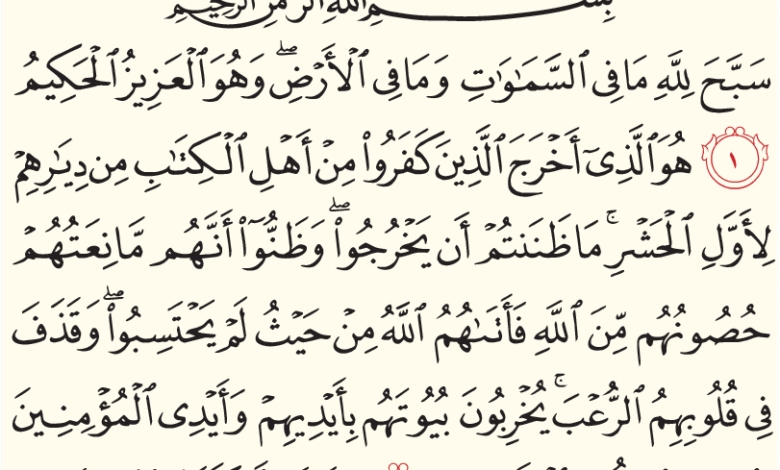 بِسْمِ ٱللَّهِ ٱلرَّحْمَٰنِ ٱلرَّحِيمِ
سَبَّحَ لِلَّهِ مَا فِى ٱلسَّمَٰوَٰتِ وَمَا فِى ٱلْأَرْضِۖ وَهُوَ ٱلْعَزِيزُ ٱلْحَكِيمُ
١ هُوَ ٱلَّذِىٓ أَخْرَجَ ٱلَّذِينَ كَفَرُوا۟ مِنْ أَهْلِ ٱلْكِتَٰبِ مِن دِيَٰرِهِمْ
لِأَوَّلِ ٱلْحَشْرِۚ مَا ظَنَنتُمْ أَن يَخْرُجُوا۟ۖ وَظَنُّوٓا۟ أَنَّهُم مَّانِعَتُهُمْ
حُصُونُهُم مِّنَ ٱللَّهِ فَأَتَىٰهُمُ ٱللَّهُ مِنْ حَيْثُ لَمْ يَحْتَسِبُوا۟ۖ وَقَذَفَ
فِى قُلُوبِهِمُ ٱلرُّعْبَۚ يُخْرِبُونَ بُيُوتَهُم بِأَيْدِيهِمْ وَأَيْدِى ٱلْمُؤْمِنِينَ